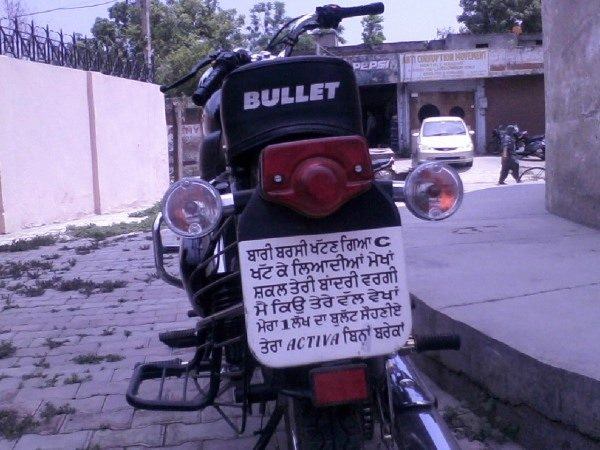 PEPSI
ANTI CORRUPTION MOVEMENT
BULLET
ਬਾਰੀ ਬਰਸੀ ਖੱਟਣ ਗਿਆ C
ਖੱਟ ਕੇ ਲਿਆਦੀਆਂ ਮੇਖਾਂ
ਸ਼ਕਲ ਤੇਰੀ ਬਾਂਦਰੀ ਵਰਗੀ
ਮੈਂ ਕਿਉ ਤੇਰੇ ਵੱਲ ਵੇਖਾਂ
ਮੇਰਾ 1 ਲੱਖ ਦਾ ਬੁਲੱਟ ਸੌਹਣੀਏ
ਤੇਰਾ ACTIVA ਬਿਨਾਂ ਬਰੇਕਾਂ